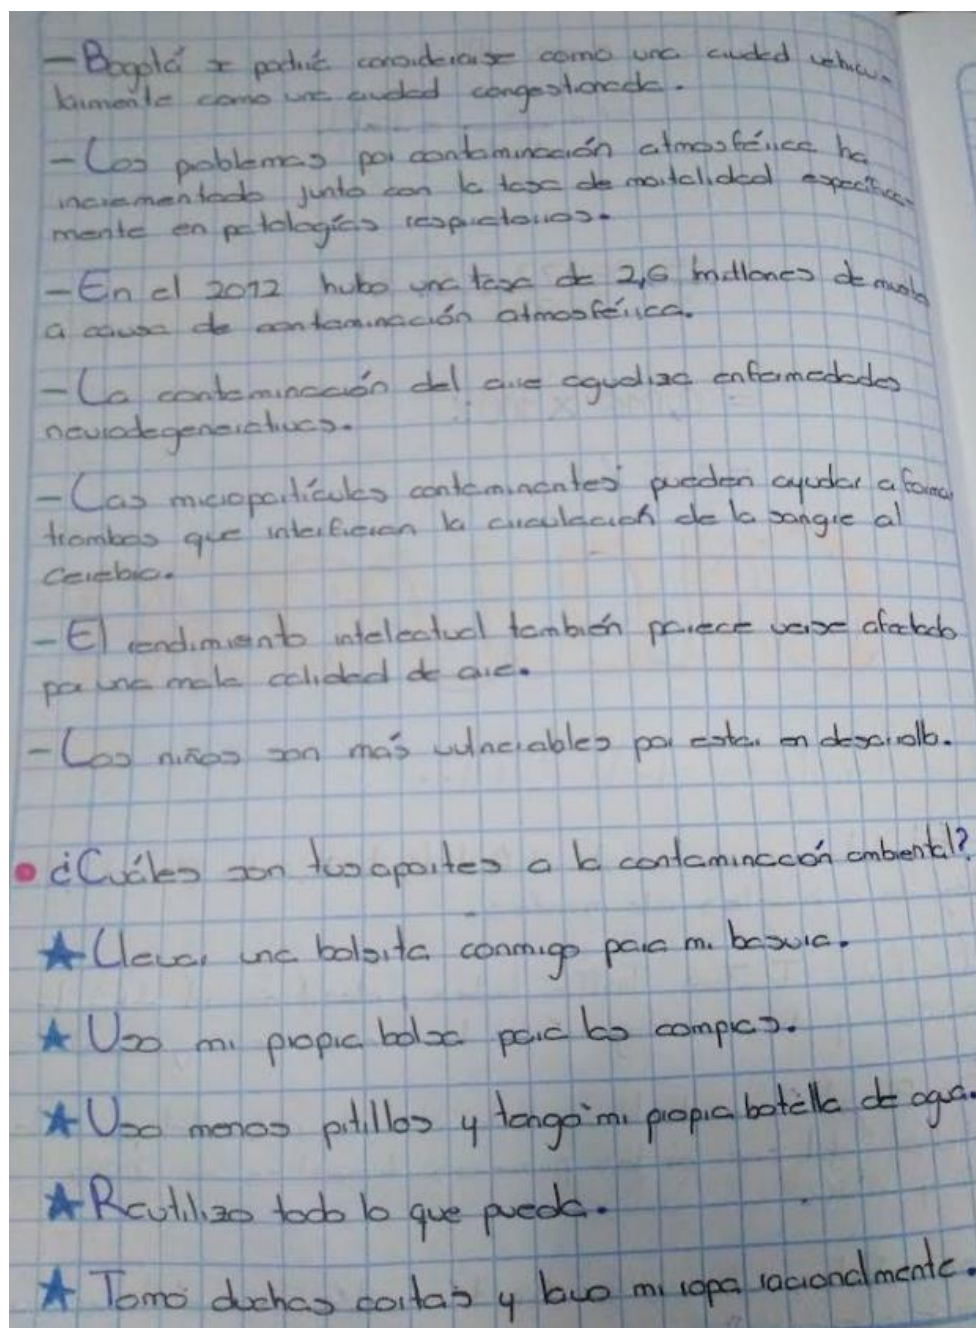 - Bogotá se podría considerarse como una ciudad vehicu-
larmente como una ciudad congestionada.
- Los problemas por contaminación atmosférica ha
incrementado junto con la tasa de mortalidad específica-
mente en patologías respiratorias.
- En el 2012 hubo una tasa de 2,6 millones de
a causa de contaminación atmosférica.
- La contaminación del aire agudiza enfermedades
neurodegenerativas.
- Las micropartículas contaminantes pueden ayudar a formar
trombos que interfieran la circulación de la sangre al
cerebro.
- El rendimiento intelectual también parece verse afectado
por una mala calidad de aire.
- Los niños son más vulnerables por estar en desarrollo.
• ¿Cuáles son tus aportes a la contaminación ambiental?
★ Llevar una bolsita conmigo para mi basura.
★ Uso mi propia bolsa para las compras.
★ Uso menos pitillos y tengo mi propia botella de agua.
★ Reutilizo todo lo que pueda.
★ Tomo duchas cortas y lavo mi ropa racionalmente.